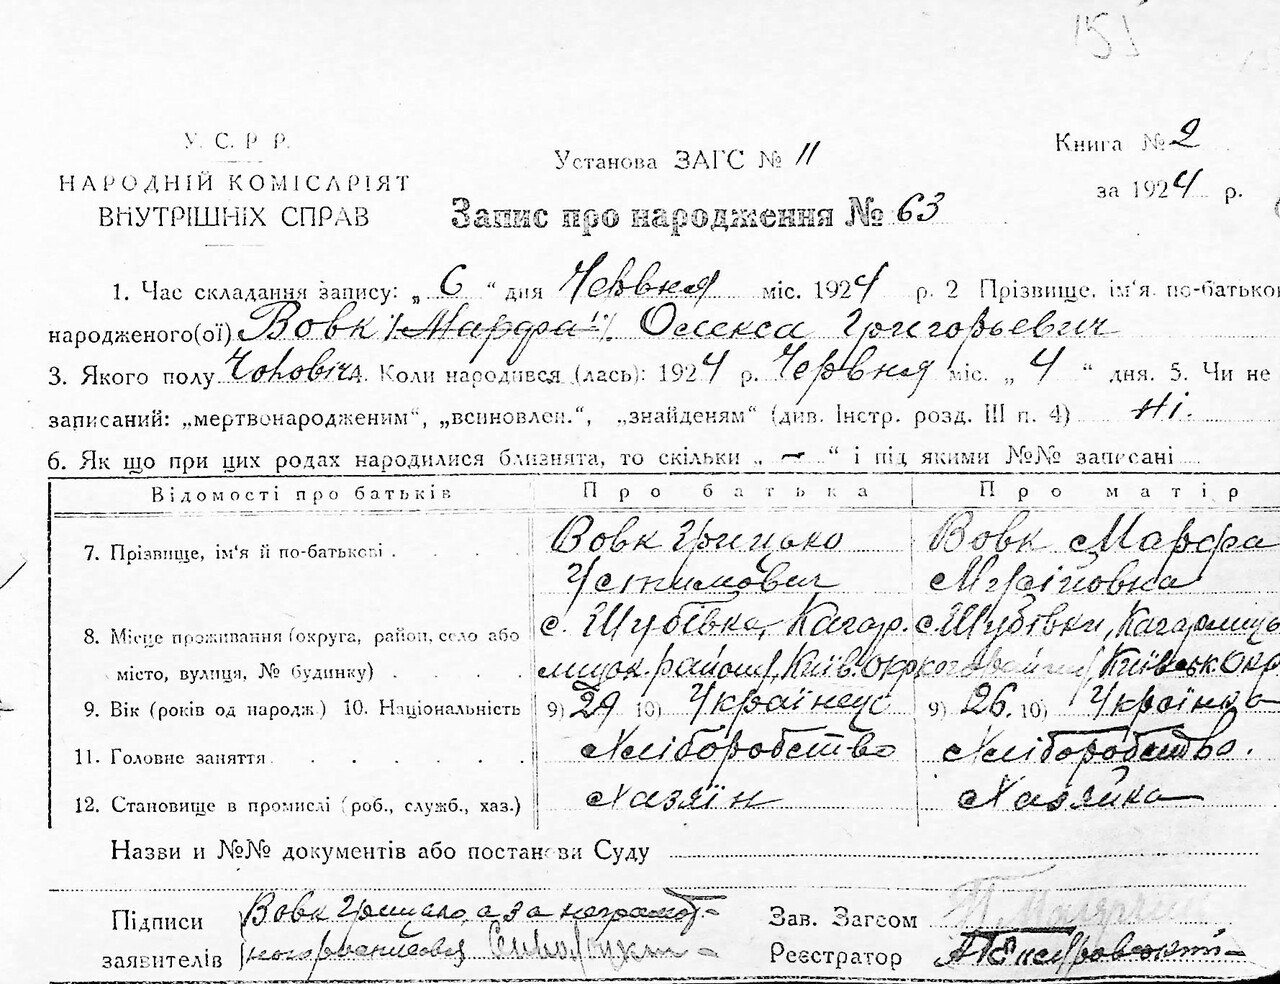 151
У. С. Р. Р.
НАРОДНІЙ КОМІСАРІЯТ
ВНУТРІШНІХ СПРАВ
Установа ЗАГС № 11
Запис про народження № 63
Книга № 2
за 1924 р.
1. Час складання запису: „ 6 “ дня Червня міс. 1924 р. 2 Прізвище, ім'я по-батькові
народженого(ої) Вовк /Марфа/ Олекса Григорьевич
3. Якого полу Чоловіч. Коли народився (лась): 1924 р. Червня міс. „ 4 “ дня. 5. Чи не
записаний: „мертвонародженим“, „всиновлен.“, „знайденям“ (див. Інстр. розд. III п. 4) Ні.
6. Як що при цих родах народилися близнята, то скільки „ — “ і під якими №№ записані
Відомості про батьків
Про батька
Про матір
7. Прізвище, ім'я й по-батькові
Вовк Грицько
Устимович
Вовк Марфа
Мусіївна
8. Місце проживання (округа, район, село або
місто, вулиця, № будинку)
с. Шубівка, Кагар.
лицьк. района, Київ. окр
с. Шубівки, Кагарлиць
кого района, Київськ. окр.
9. Вік (років од народж.) 10. Національність
9) 29 10) Українець
9) 26. 10) Українка
11. Головне заняття
Хліборобство
Хліборобство.
12. Становище в промислі (роб., служб., хаз.)
Хазяїн
Хазяйка
Назви и №№ документів або постанови Суду
Підписи
заявителів
Вовк а за неграмот-
ного росписався
Зав. Загсом
Реєстратор